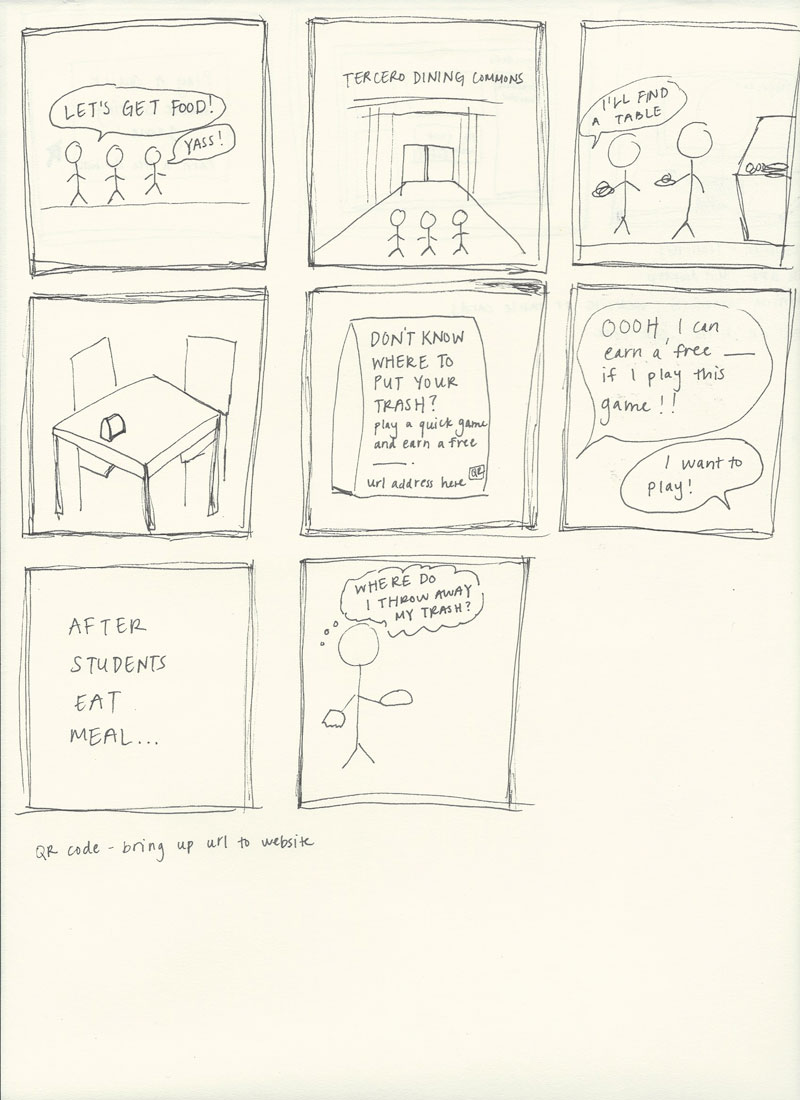 LET'S GET FOOD!
YASS!
TERCERO DINING COMMONS
I'LL FIND
A TABLE
DON'T KNOW
WHERE TO
PUT YOUR
TRASH?
play a quick game
and earn a free
___.
url address here QR
OOOH, I can
earn a free ___
if I play this
game!!
I want to
play!
AFTER
STUDENTS
EAT
MEAL...
WHERE DO
I THROW AWAY
MY TRASH?
QR code - bring up url to website